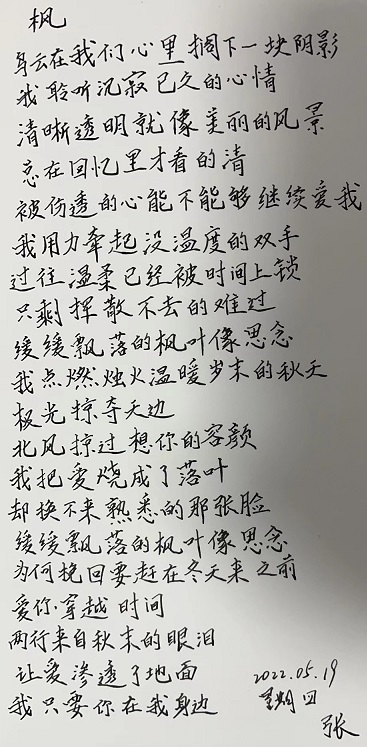 枫
乌云在我们心里搁下一块阴影
我聆听沉寂已久的心情
清晰透明就像美丽的风景
总在回忆里才看的清
被伤透的心能不能够继续爱我
我用力牵起没温度的双手
过往温柔已经被时间上锁
只剩挥散不去的难过
缓缓飘落的枫叶像思念
我点燃烛火温暖岁末的秋天
极光掠夺天边
北风掠过想你的容颜
我把爱烧成了落叶
却换不来熟悉的那张脸
缓缓飘落的枫叶像思念
为何挽回要赶在冬天来之前
爱你穿越时间
两行来自秋末的眼泪
让爱渗透了地面
我只要你在我身边
2022.05.19
星期四
张